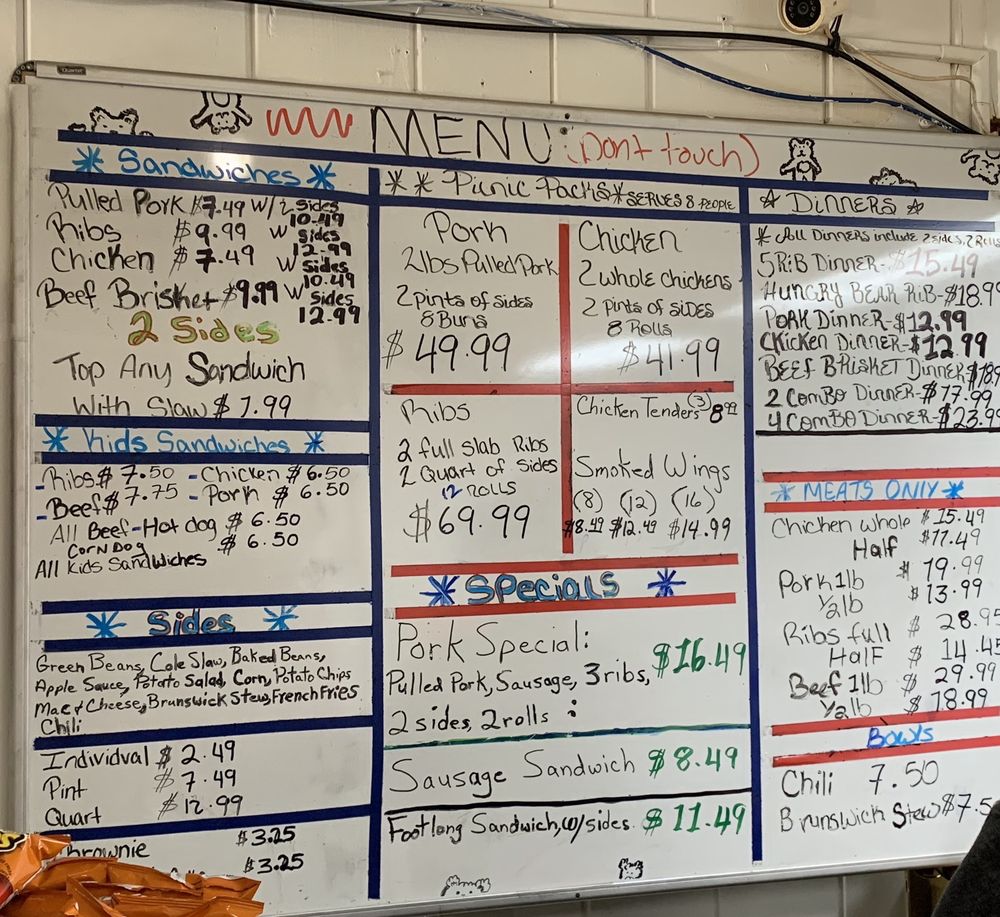 Quartet
MENU (Don't touch)
Sandwiches
Pulled Pork $7.49 w/2 Sides 10.49
Ribs $9.99 w Sides 12.99
Chicken $7.49 w Sides 10.49
Beef Brisket $9.99 w Sides 12.99
2 Sides
Top Any Sandwich
With Slaw $1.99
Kids Sandwiches
Ribs $7.50 - Chicken $6.50
Beef $7.75 - Pork $6.50
All Beef-Hot dog $6.50
Corn Dog $6.50
All Kids Sandwiches
Sides
Green Beans, Cole Slaw, Baked Beans,
Apple Sauce, Potato Salad, Corn, Potato Chips
Mac & Cheese, Brunswick Stew, French Fries
Chili
Individual $2.49
Pint $7.49
Quart $12.99
Brownie $3.25
$3.25
Picnic Packs SERVES 8 PEOPLE
Pork
2lbs Pulled Pork
2 pints of sides
8 Buns
$49.99
Chicken
2 whole chickens
2 Pints of sides
8 Rolls
$41.99
Ribs
2 full slab Ribs
2 Quart of sides
12 Rolls
$69.99
Chicken Tenders (3) 8.99
Smoked Wings
(8) (12) (16)
$8.49 $12.49 $14.99
Specials
Pork Special: $16.49
Pulled Pork, Sausage, 3 ribs,
2 sides, 2 rolls :
Sausage Sandwich $8.49
Footlong Sandwich, w/sides. $11.49
DINNERS
* All Dinners include 2 sides, 2 Rolls
5 RIB DINNER- $15.49
HUNGRY BEAR RIB-$18.99
PORK DINNER-$12.99
CHICKEN DINNER-$12.99
BEEF BRISKET DINNER
2 COMBO DINNER-$17.99
4 COMBO DINNER-$23.99
MEATS ONLY
Chicken whole $15.49
Half $11.49
Pork 1lb $19.99
1/2lb $13.99
Ribs full $28.95
Half $14.45
Beef 1lb $29.99
1/2lb $18.99
Bowls
Chili 7.50
Brunswick Stew $7.5